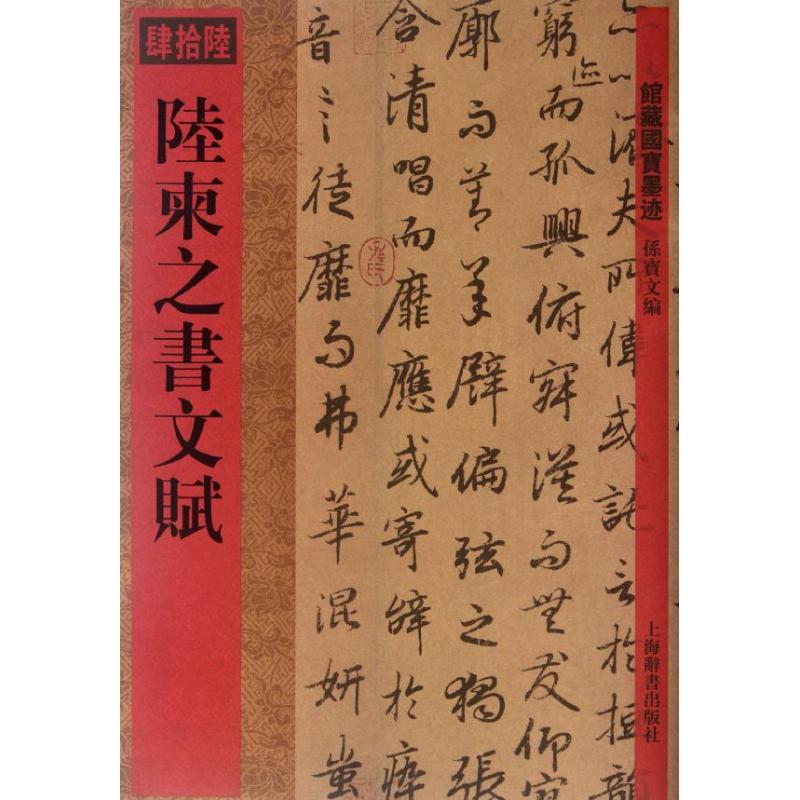 肆拾陸
陸柬之書文賦
館藏國寶墨迹
孫寶文編
上海辭書出版社
濟夫所偉或託言於短韻
窮迹而孤興俯寂漠而無友仰寥
廓而莫承譬偏弦之獨張
含清唱而靡應或寄辭於瘁
音言徒靡而弗華混妍蚩